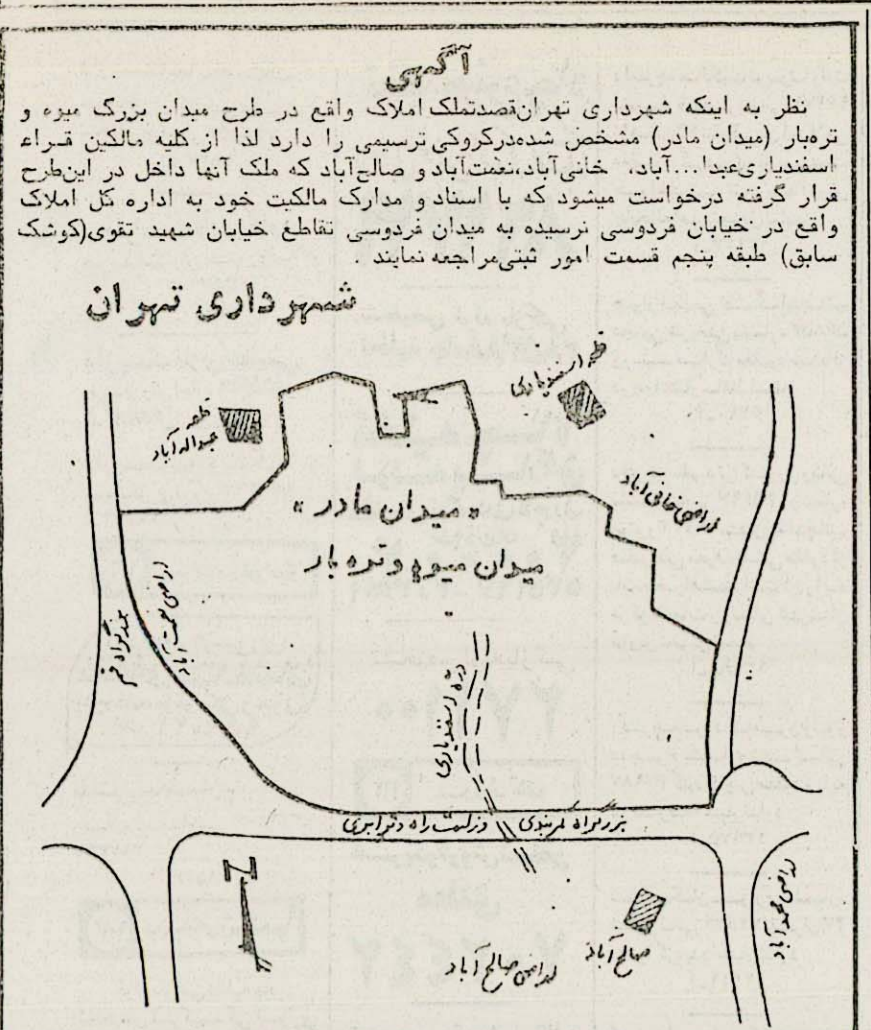 آگهی
نظر به اینکه شهرداری تهران قصد تملک املاک واقع در طرح میدان بزرگ میوه و
تره‌بار (میدان مادر) مشخص شده درکروکی ترسیمی را دارد لذا از کلیه مالکین قراء
اسفندیاری عبدا...آباد، خانی‌آباد، نعمت‌آباد و صالح‌آباد که ملک آنها داخل در این طرح
قرار گرفته درخواست میشود که با اسناد و مدارک مالکیت خود به اداره کل املاک
واقع در خیابان فردوسی نرسیده به میدان فردوسی تقاطع خیابان شهید تقوی(کوشک
سابق) طبقه پنجم قسمت امور ثبتی مراجعه نمایند .
شهرداری تهران
قلعه اسفندیاری
قلعه
عبداله آباد
اراضی خانی آباد
« میدان مادر »
میدان میوه و تره بار
اراضی نعمت آباد
بزرگراه قم
دره اسفندیاری
بزرگراه کمربندی وزارت راه و ترابری
اراضی محمد آباد
صالح آباد
اراضی صالح آباد